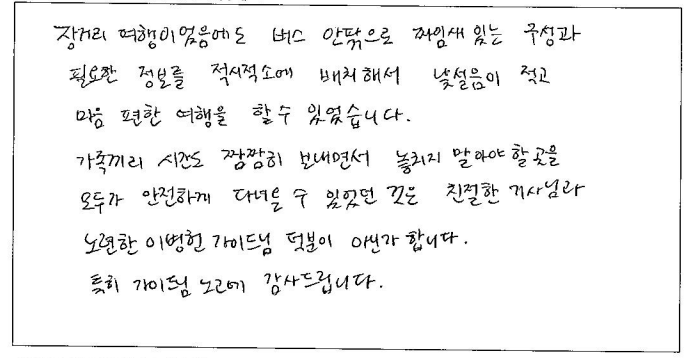 장거리 여행이었음에도 버스 안팎으로 짜임새 있는 구성과
필요한 정보를 적시적소에 배치해서 낯설음이 적고
마음 편한 여행을 할 수 있었습니다.
가족끼리 시간도 짬짬히 보내면서 놓치지 말아야 할 곳을
모두가 안전하게 다녀올 수 있었던 것은 친절한 기사님과
노련한 이병헌 가이드님 덕분이 아닌가 합니다.
특히 가이드님 노고에 감사드립니다.